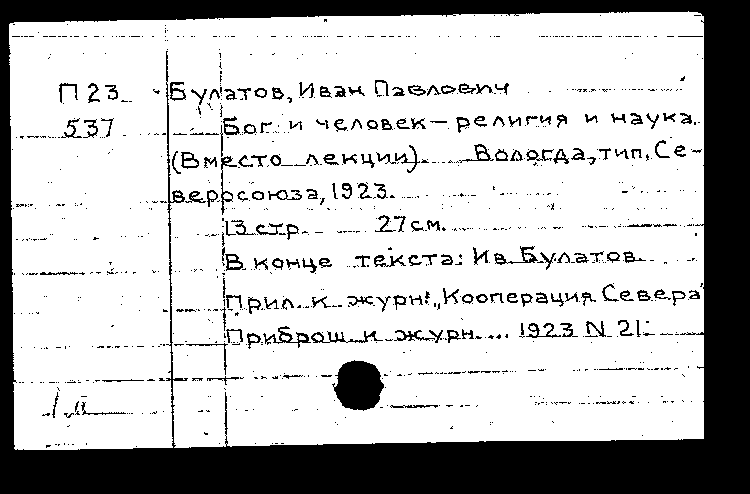 П 23 Булатов, Иван Павлович
537 Бог и человек – религия и наука.
(Вместо лекции). Вологда, тип. Се-
веросоюза, 1923.
13 стр. 27 см.
В конце текста: Ив. Булатов.
Прил. к журн: „Кооперация Севера"
Приброш. к журн. ... 1923 N 21.